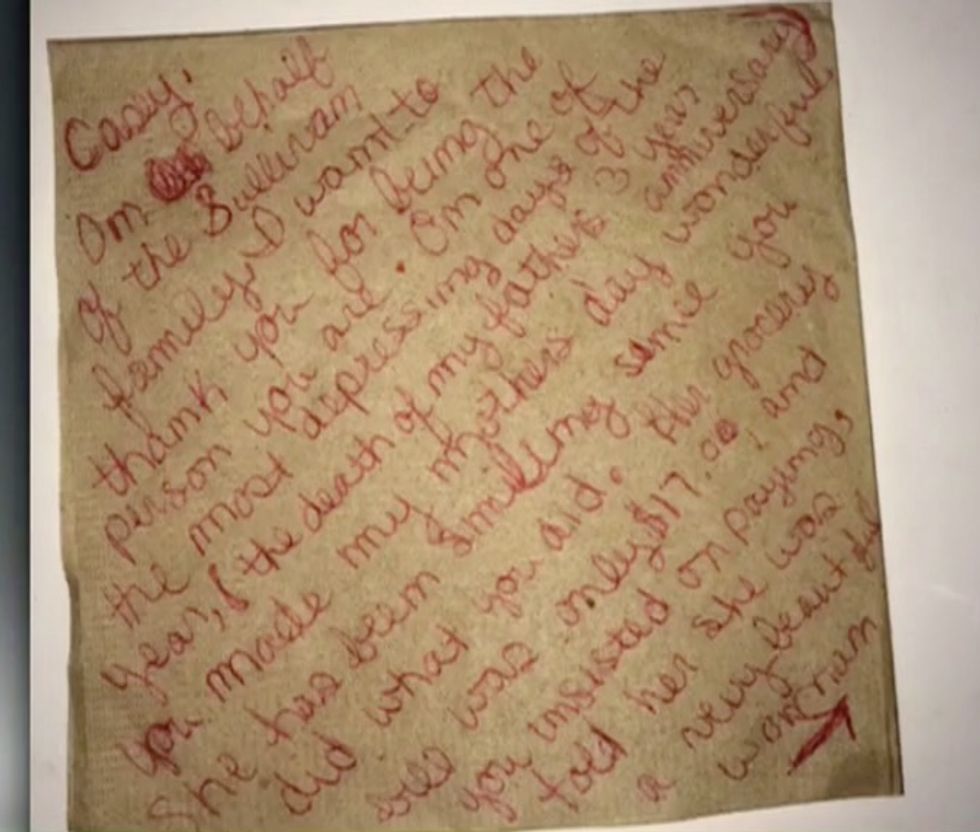 Casey,
On behalf
of the Sullivan
family I want to
thank you for being the
person you are. On one of
the most depressing days of the
year, (the death of my fathers 3 year anniversary)
you made my mothers day wonderful
She has been smiling since you
did what you did. Her grocery
bill was only $17.00! and
you insisted on paying,
told her she was
a very beautiful
woman